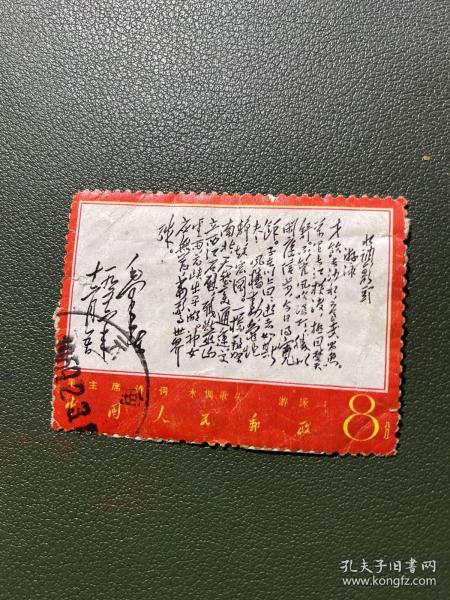 水调歌头
游泳
才饮长沙水又食武昌鱼
万里长江横渡极目楚
天舒不管风吹浪打胜似
闲庭信步今日得宽
馀子在川上曰逝者如斯
夫风樯动龟蛇
静起宏图一桥飞架
南北天堑变通途更
立西江石壁截断巫山
云雨高峡出平湖神女
应无恙当惊世界
殊
毛泽东
一九五六年
十二月五日
主席诗词 水调歌头 游泳
中国人民邮政
8分
孔夫子旧书网
www.kongfz.com